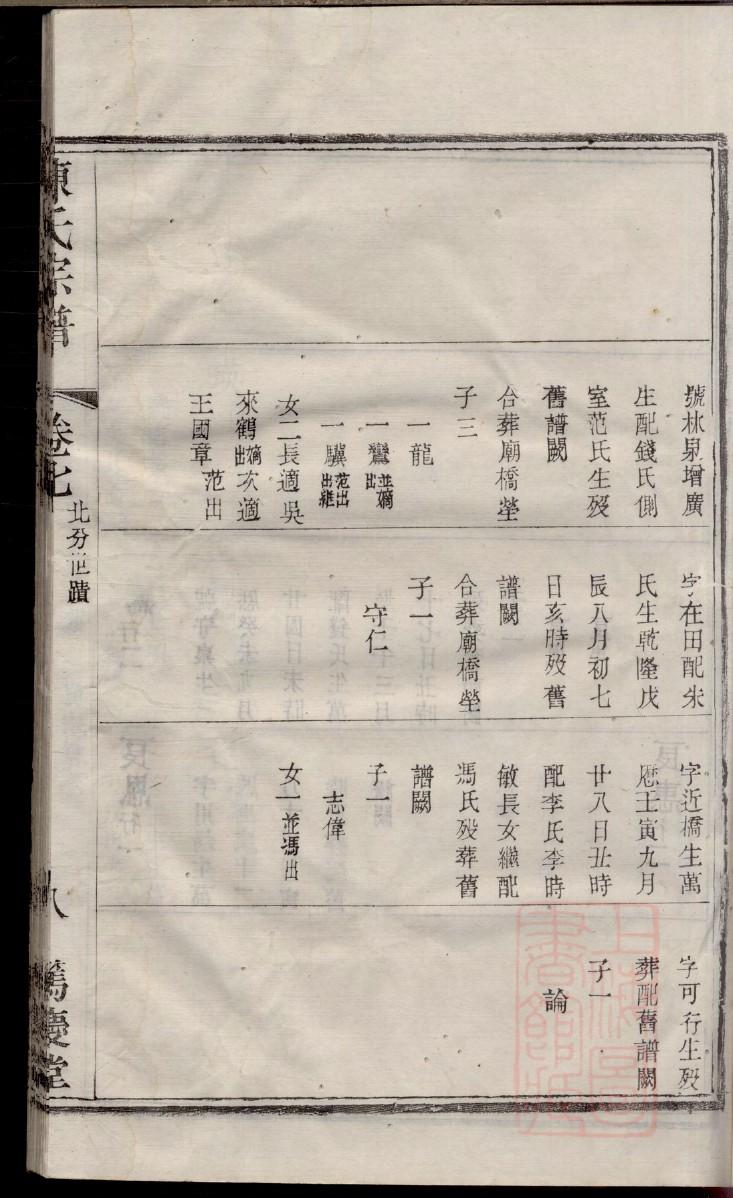 號林泉增廣
生配錢氏側
室范氏生歿
舊譜闕
合葬廟橋塋
子三
一龍
一鸞並嫡出
一驥范出出繼
女二長適吳
來鶴嫡出次適
王國章范出
字在田配朱
氏生乾隆戊
辰八月初七
日亥時歿舊
譜闕
合葬廟橋塋
子一
守仁
字近橋生萬
厯壬寅九月
廿八日丑時
配李氏李時
敏長女繼配
馮氏歿葬舊
譜闕
子一
志偉
女一並馮出
字可行生歿
葬配舊譜闕
子一
論
陳氏宗譜
卷七
北分世蹟
八
篤慶堂